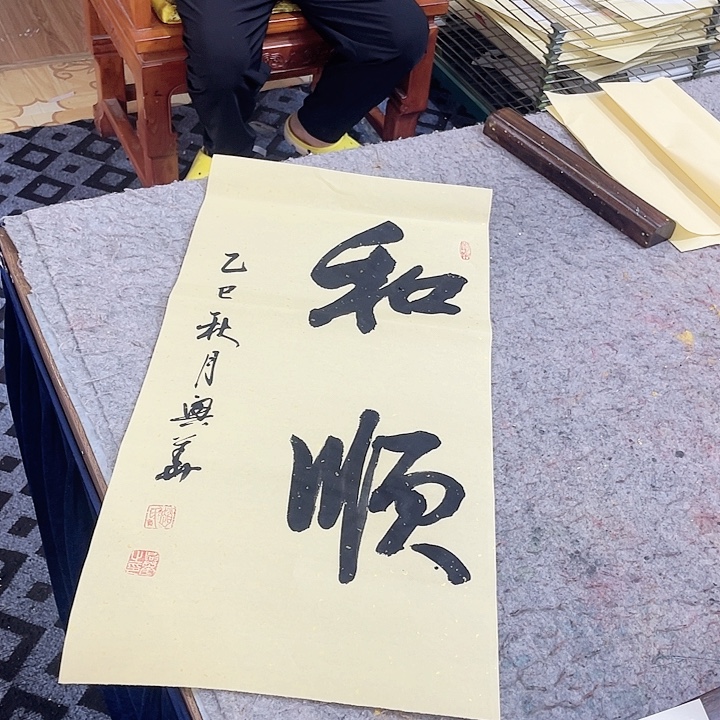 和顺
乙巳秋月兴华